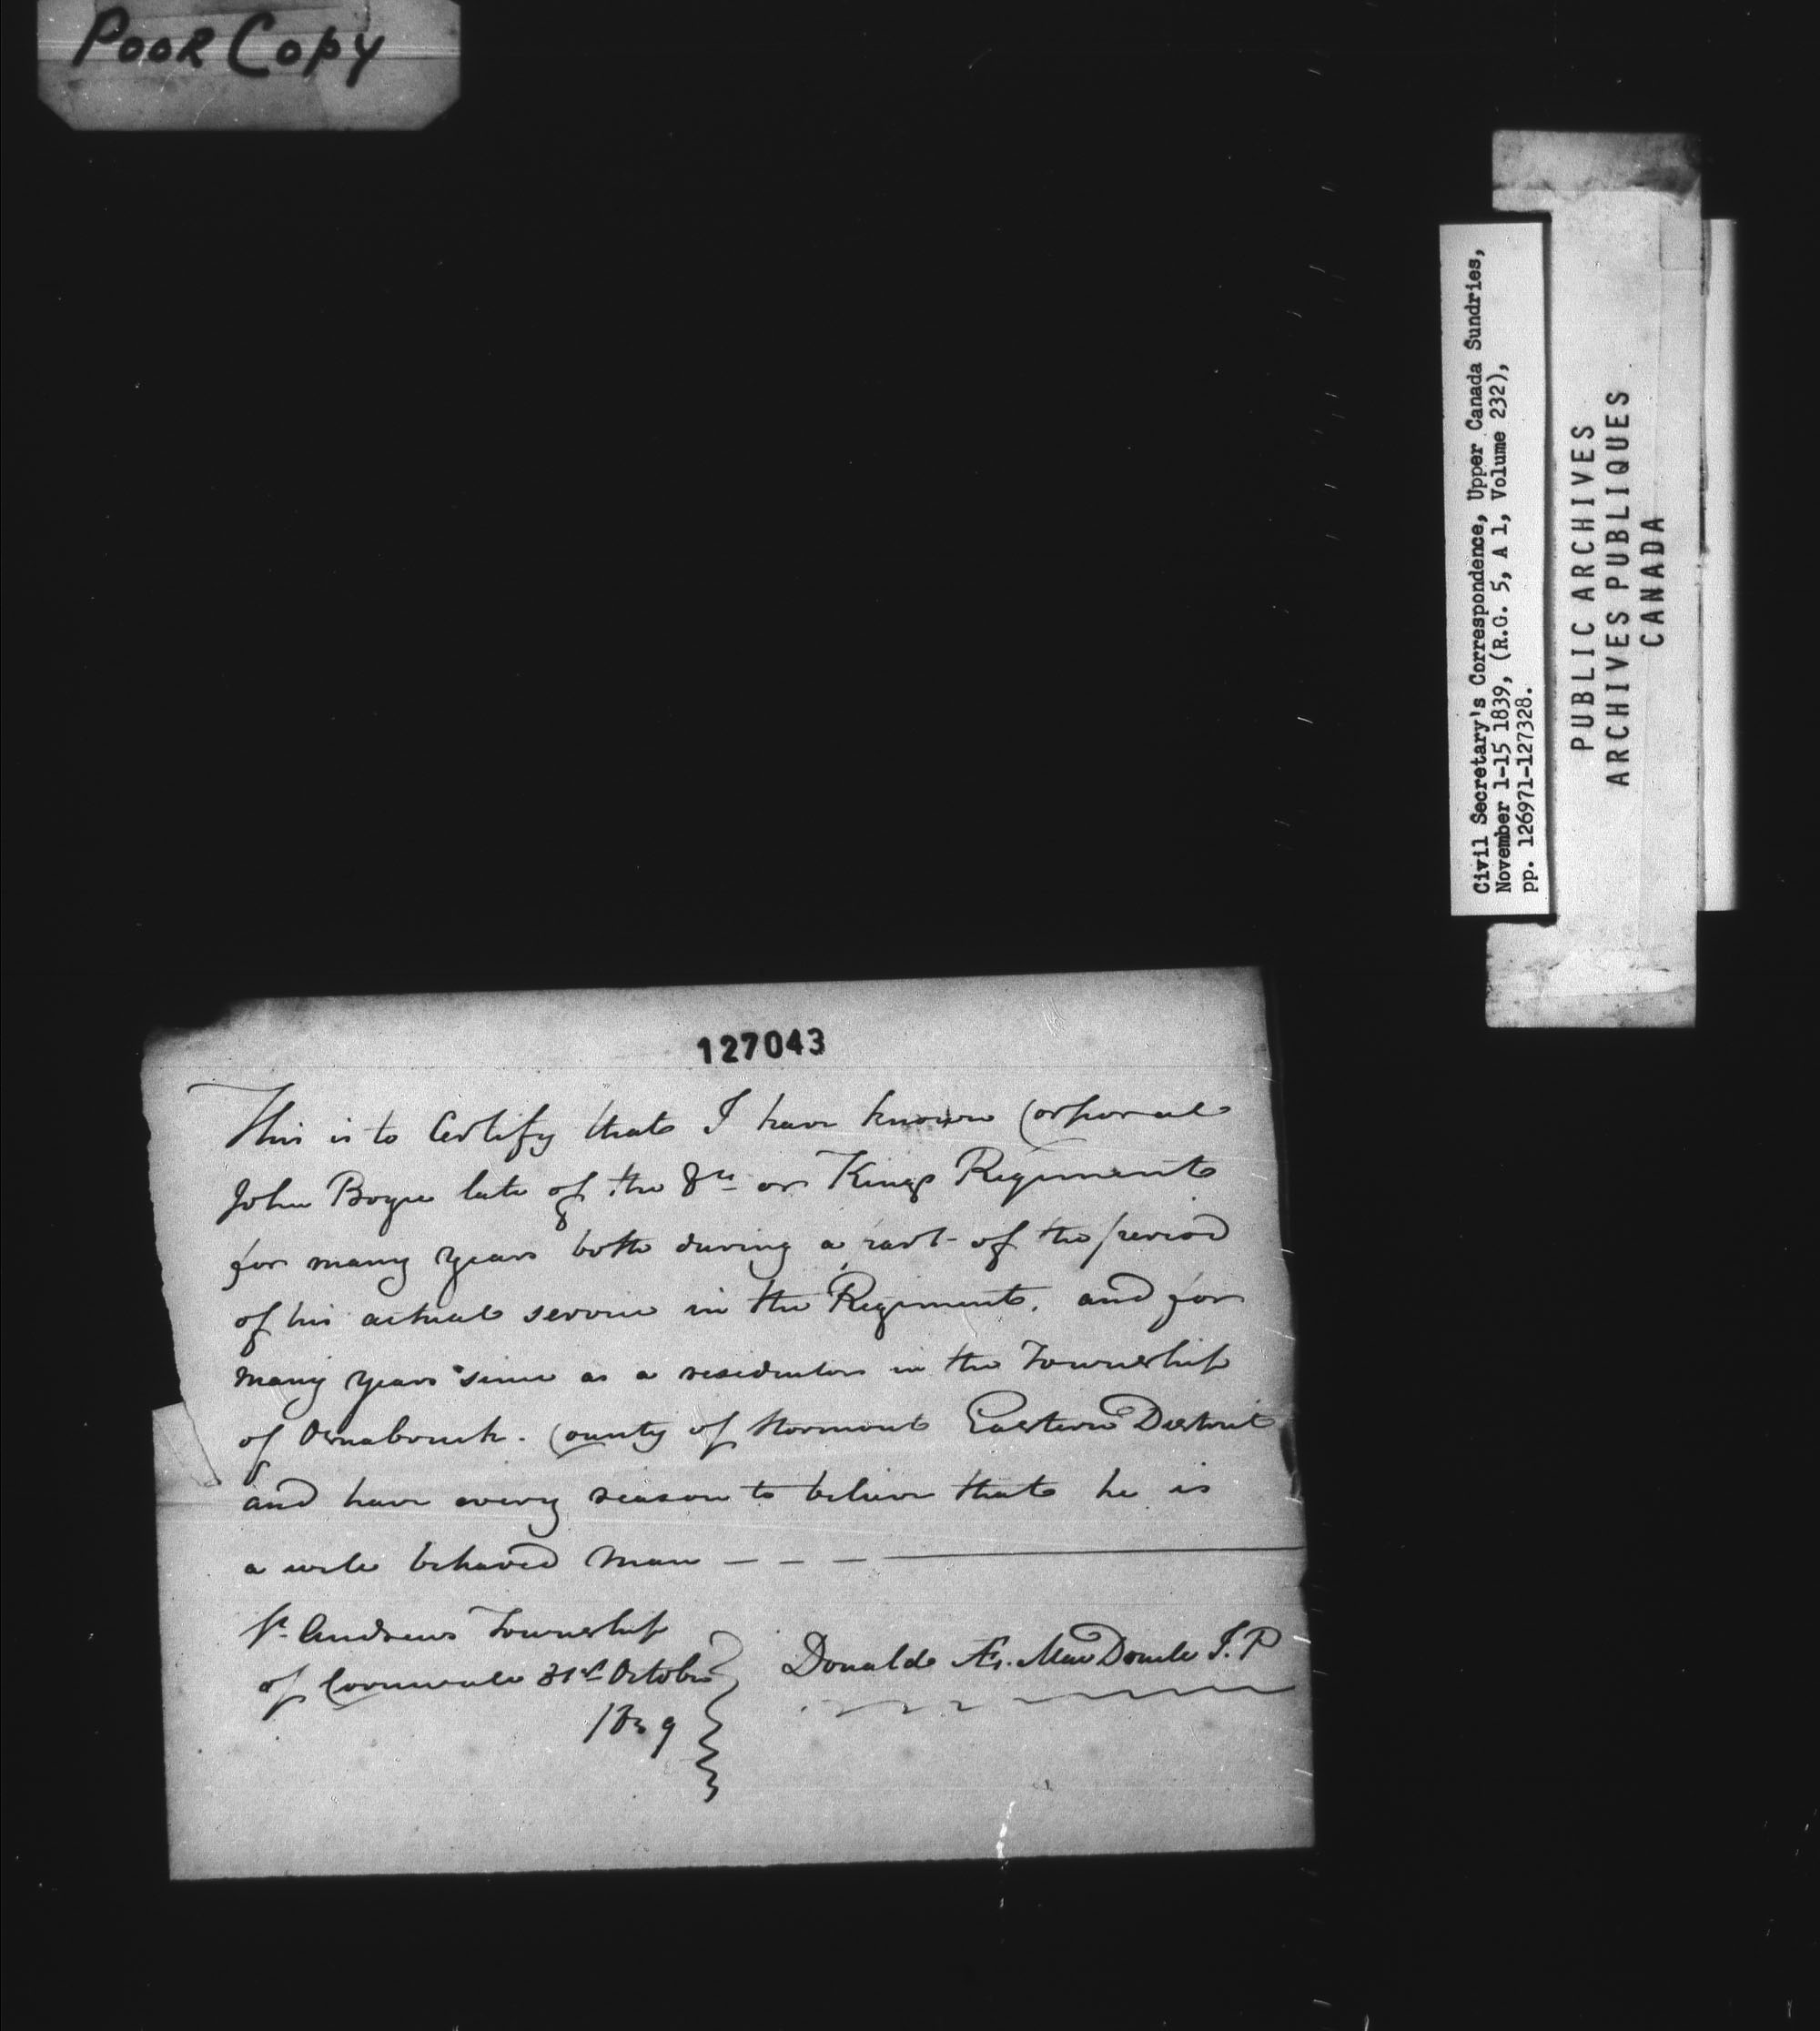 Poor Copy
Civil Secretary's Correspondence, Upper Canada Sundries,
November 1-15 1839, (R.G. 5, A 1, Volume 232),
pp. 126971-127328.
PUBLIC ARCHIVES
ARCHIVES PUBLIQUES
CANADA
127043
This is to Certify that I have known Corporal
John Bogue late of the 8th or Kings Regiment
for many years both during a part of the period
of his actual service in the Regiment. and for
many years since as a residenter in the Township
of Osnabruck. County of Stormont Eastern District
and have every reason to believe that he is
a well behaved man - - -
St. Andrews Township
of Cornwall 31st October
1839
Donald Æ. MacDonell J.P